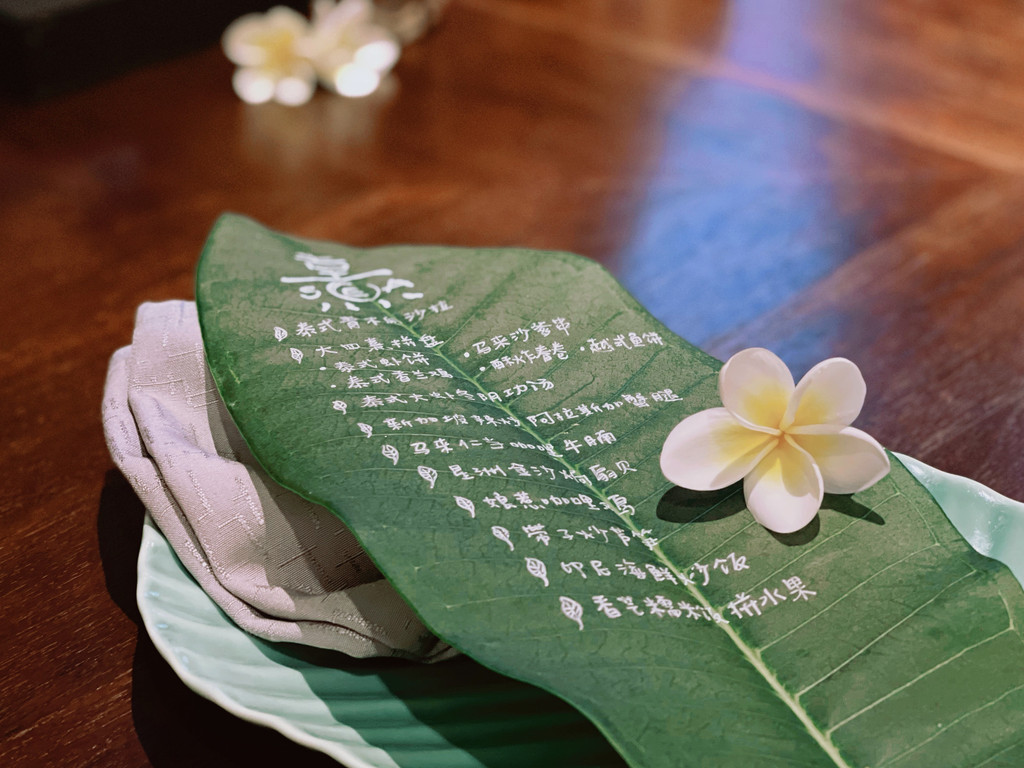 泰式青木瓜沙拉
大四喜拼盘
· 泰式虾饼 · 马来沙爹串
· 泰式香兰鸡 · 酥炸春卷 · 越式鱼饼
泰式大虾冬阴功汤
新加坡辣炒阿拉斯加蟹腿
马来仁当 牛腩
星洲金沙焗扇贝
娘惹咖喱鸡
带子炒
印尼海鲜炒饭
香芒糯米 拼水果